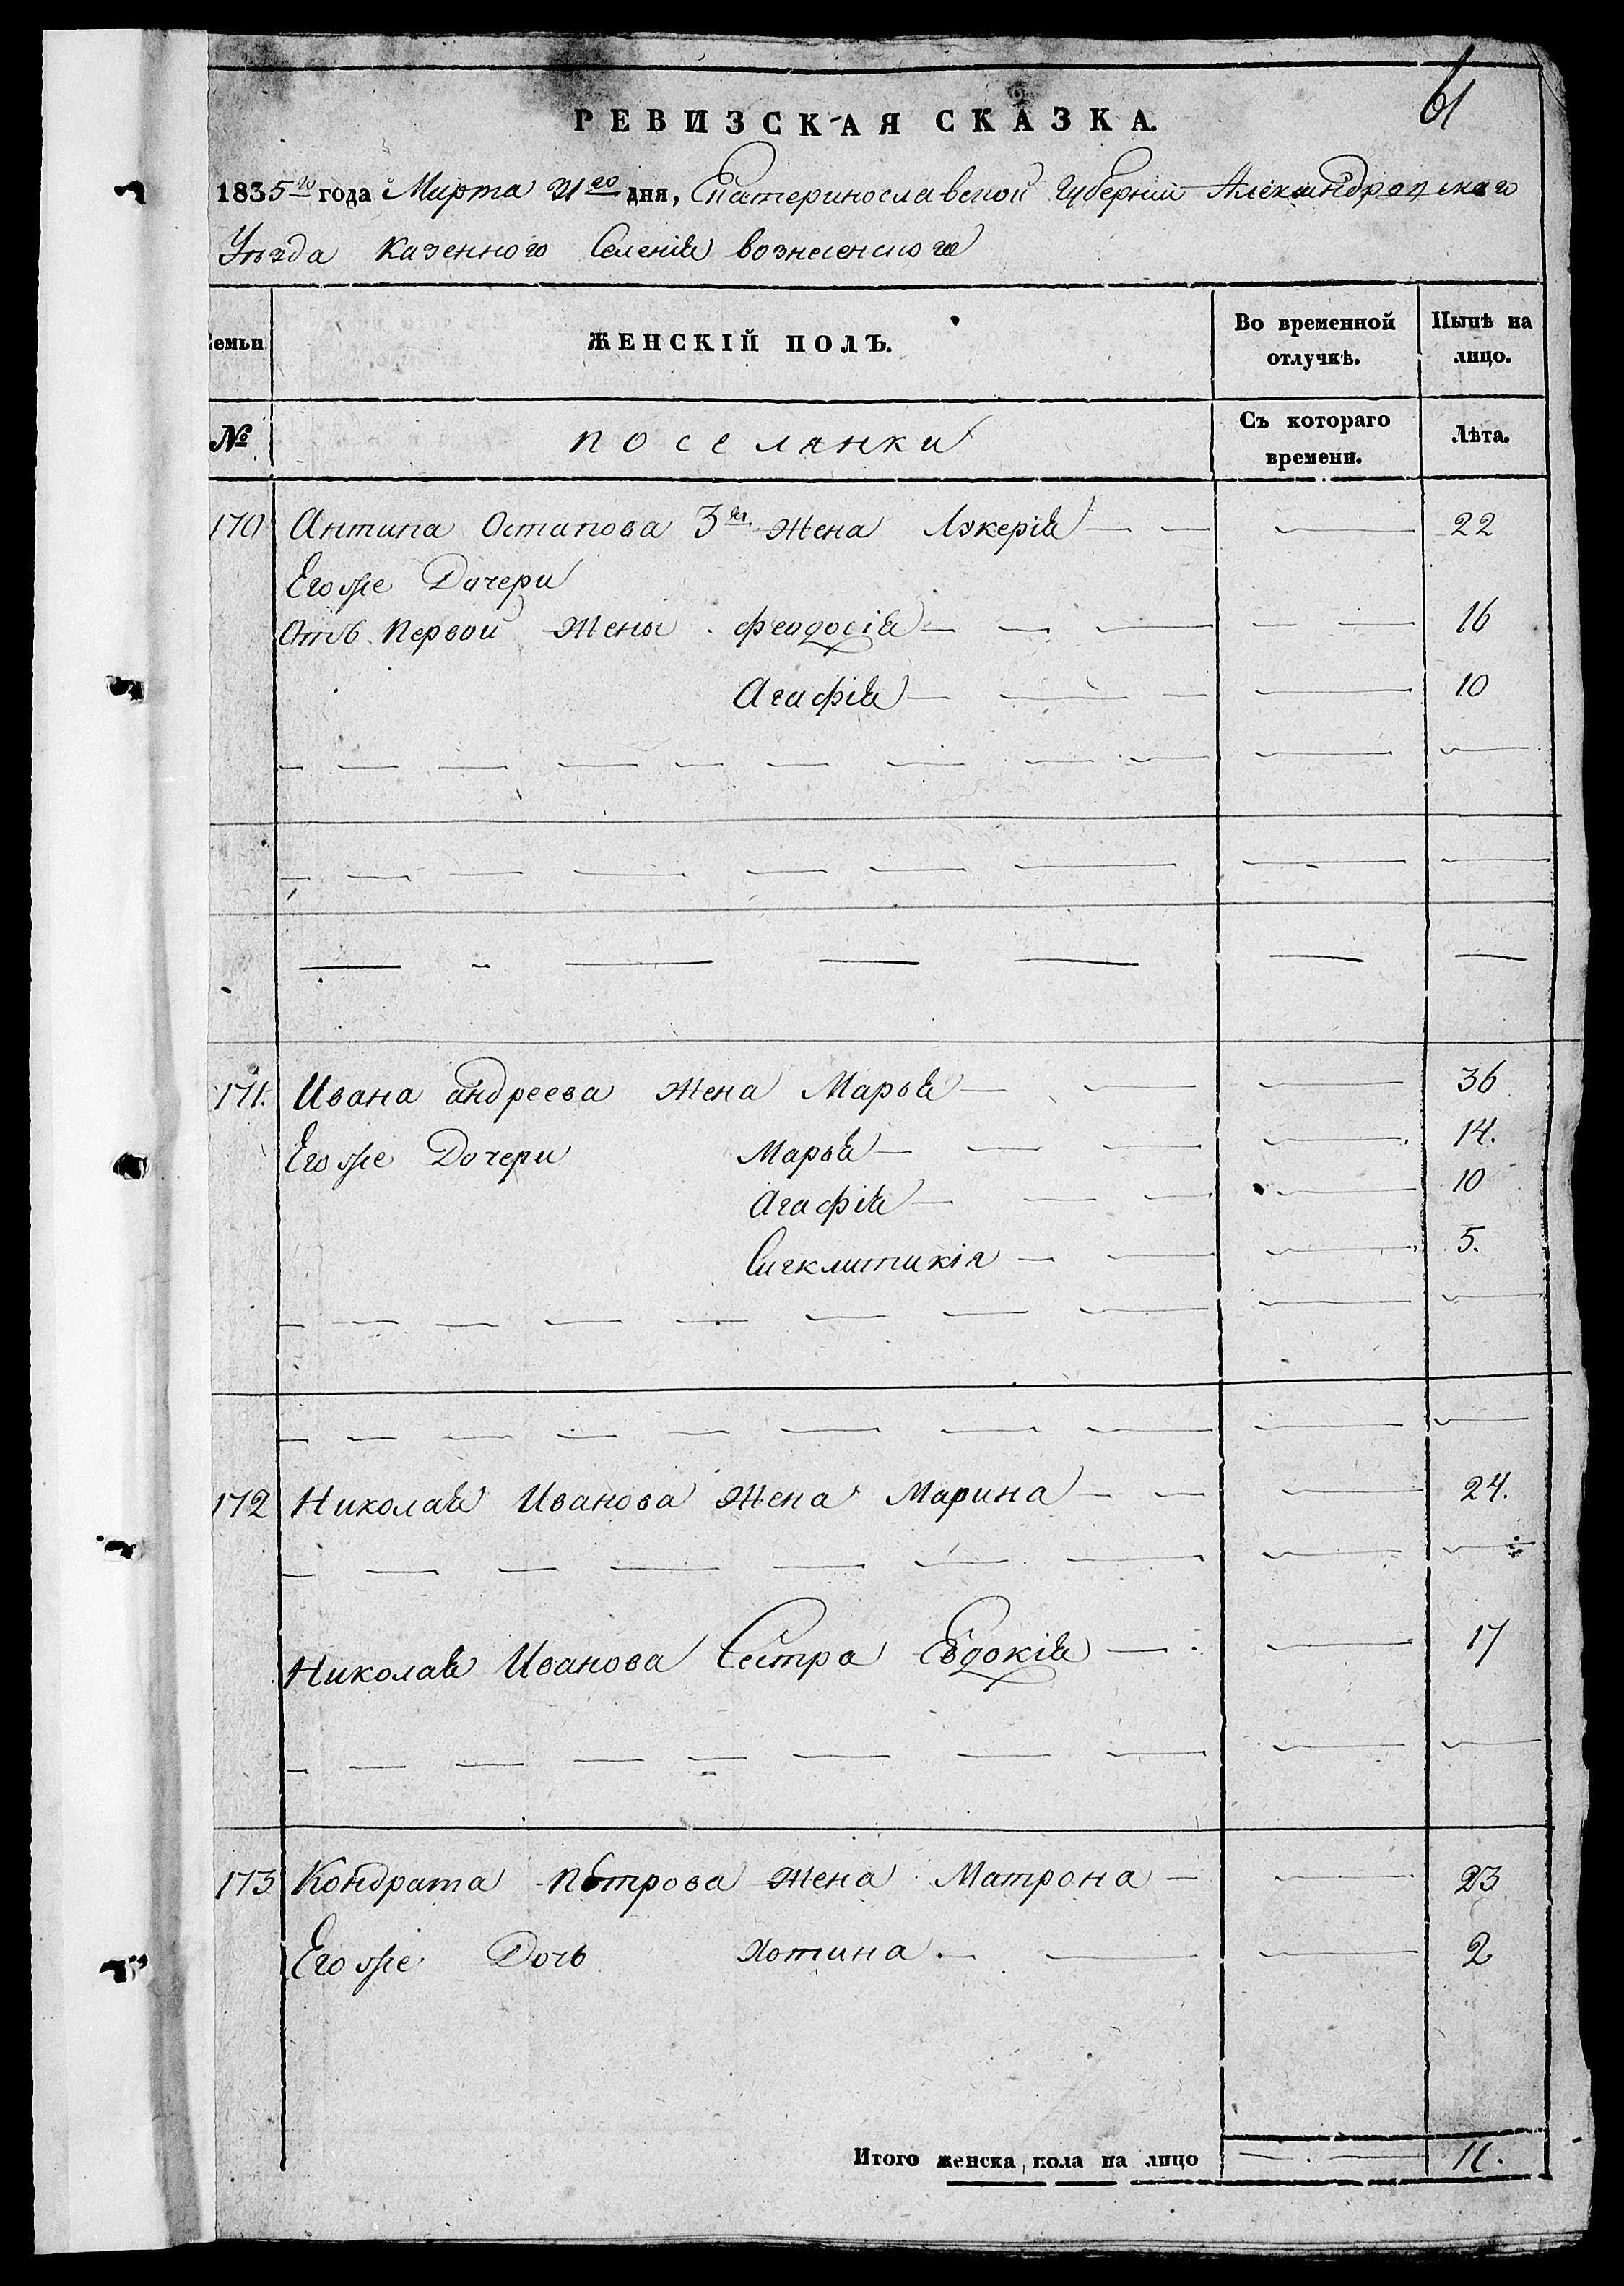 61
РЕВИЗСКАЯ СКАЗКА.
1835го года Марта 31го дня, Екатеринославской Губернии Александровскаго
Уѣзда казенного Селенія вознесенского
Семьи ЖЕНСКІЙ ПОЛЪ. Во временной отлучкѣ. Нынѣ на лицо.
№ поселянки Съ котораго времени. Лѣта.
170 Антипа Остапова 3я жена Лукерія 22
Егоже Дочери
Отъ первой жены Феодосія 16
Агафія 10
171. Ивана андреева жена Марья 36
Егоже Дочери Марья 14.
Агафія 10
Сигклитикія 5.
172 Николая Иванова жена Марина 24.
Николая Иванова Сестра Евдокія 17
173 Кондрата Петрова жена Матрона 23
Егоже Дочь Хотина 2
Итого женска пола на лицо 11.